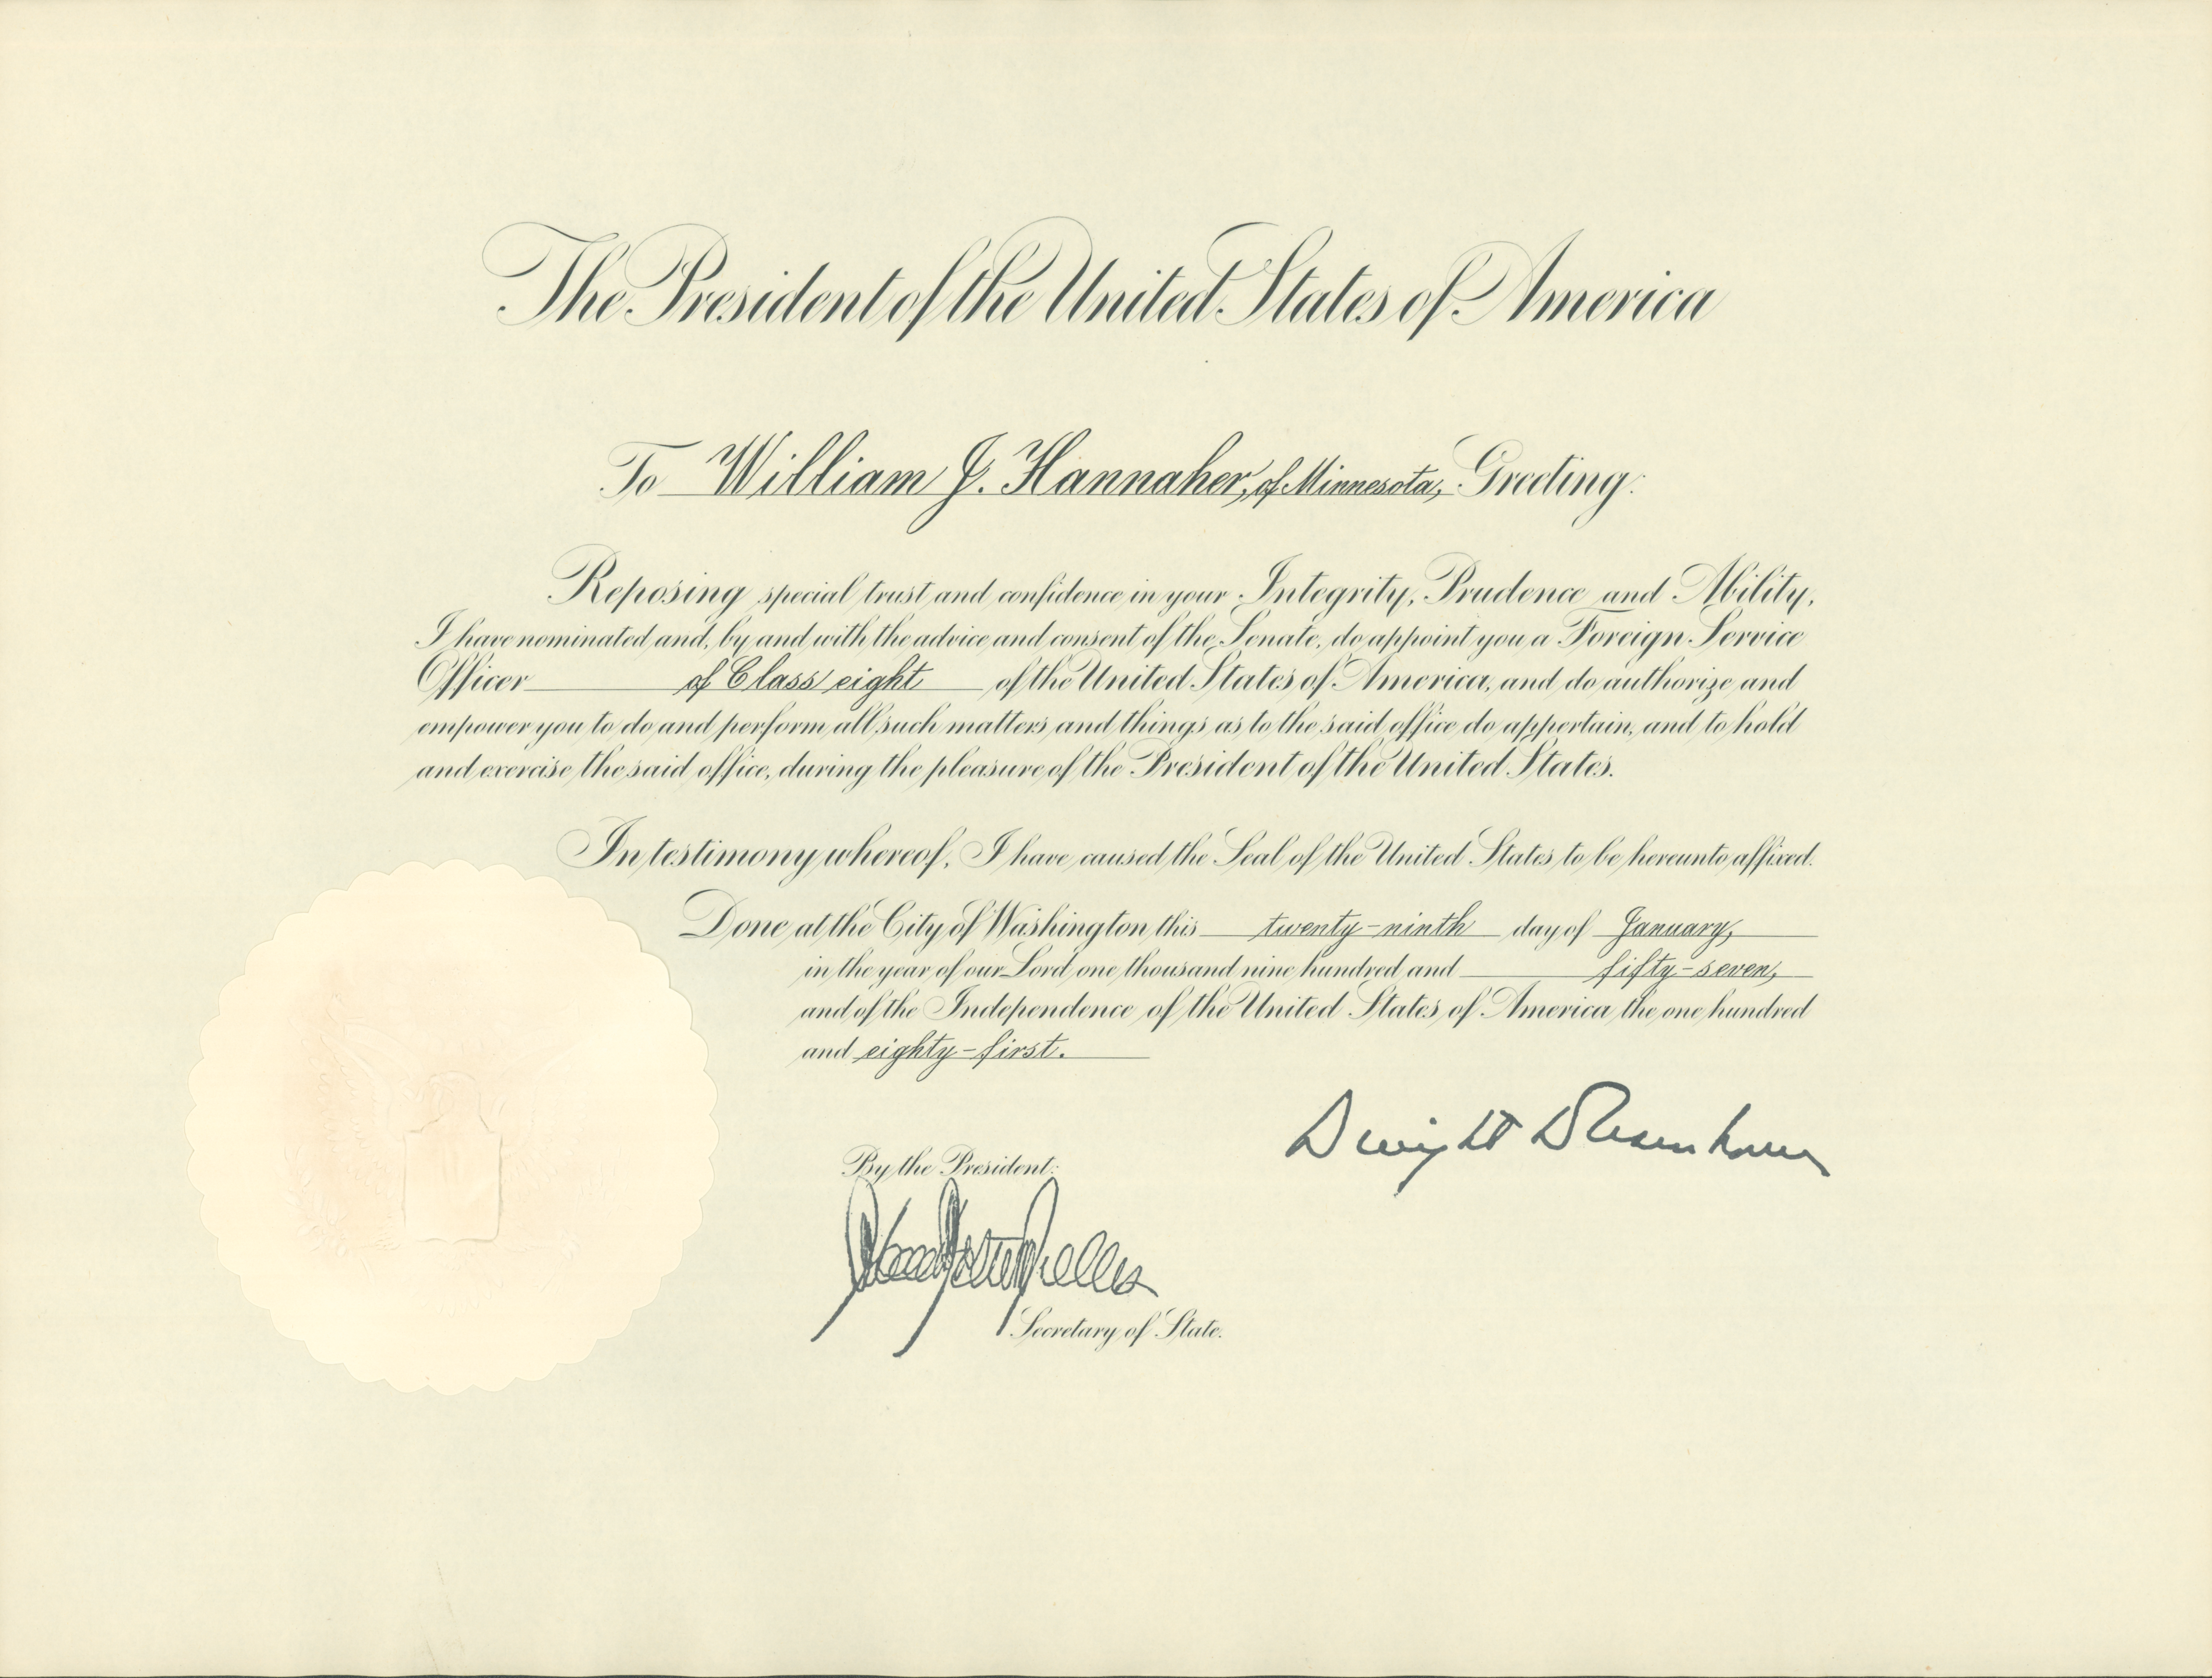 The President of the United States of America
To William J. Hannaher, of Minnesota, Greeting:
Reposing special trust and confidence in your Integrity, Prudence and Ability,
I have nominated and, by and with the advice and consent of the Senate, do appoint you a Foreign Service
Officer of Class eight of the United States of America, and do authorize and
empower you to do and perform all such matters and things as to the said office do appertain, and to hold
and exercise the said office, during the pleasure of the President of the United States.
In testimony whereof, I have caused the Seal of the United States to be hereunto affixed.
Done at the City of Washington this twenty-ninth day of January,
in the year of our Lord one thousand nine hundred and fifty-seven,
and of the Independence of the United States of America the one hundred
and eighty-first.
Dwight D Eisenhower
By the President:
John Foster Dulles
Secretary of State.